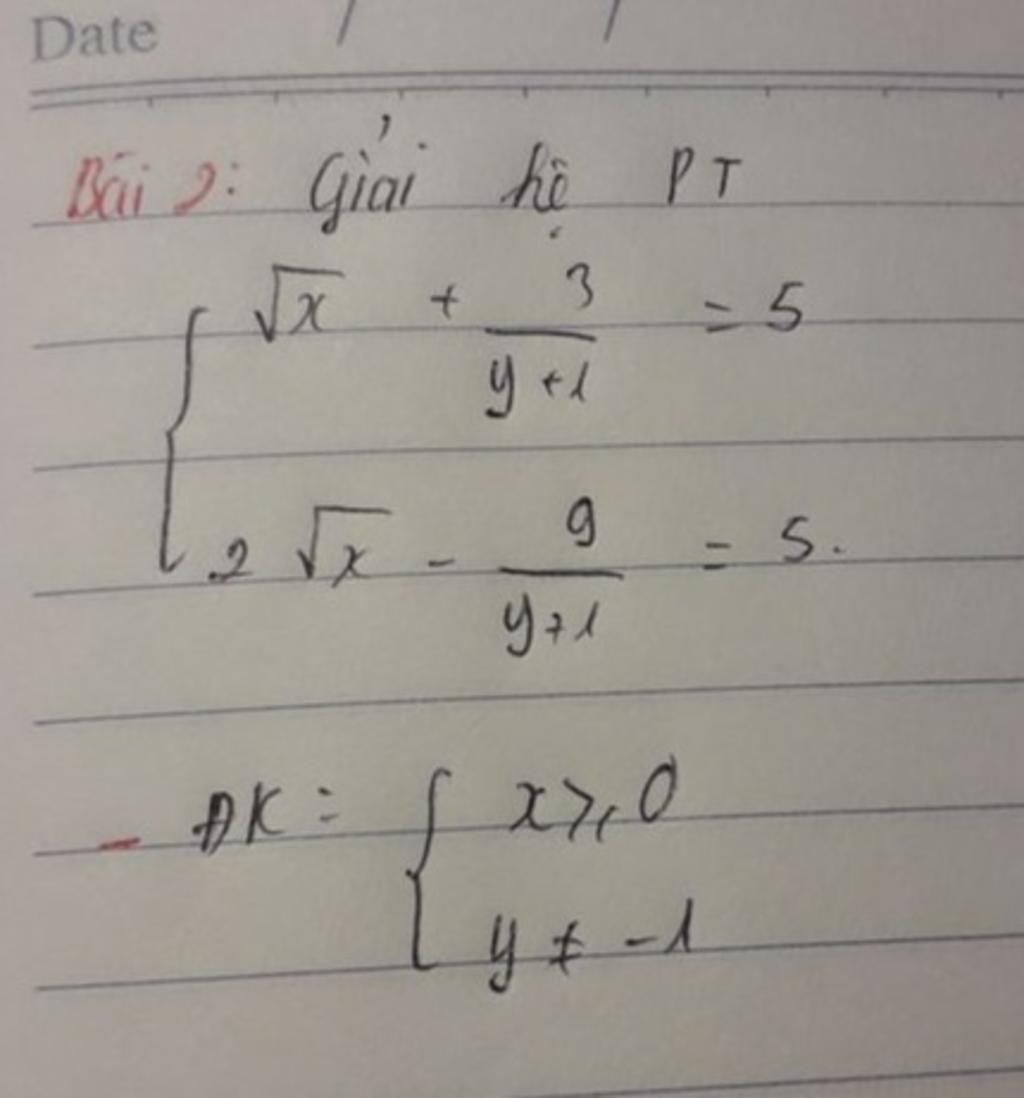 Date / /
Bài 2: Giải hệ PT
√x + 3/(y+1) = 5
2√x - 9/(y+1) = 5.
- ĐK: { x ≥ 0
y ≠ -1